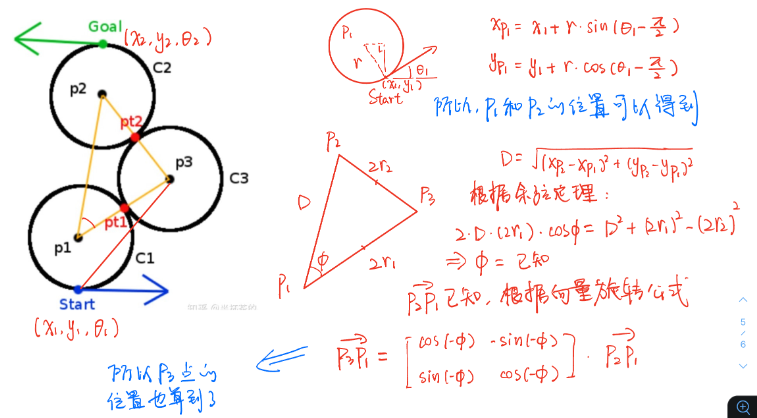 Goal (x₂, y₂, θ₂)
C2
p2
pt2
p3
C3
pt1
p1
C1
Start
(x₁, y₁, θ₁)
P₁
r
θ₁
(x₁, y₁)
Start
x_{P₁} = x₁ + r · sin(θ₁ - π/2)
y_{P₁} = y₁ + r · cos(θ₁ - π/2)
所以, P₁和P₂的位置可以得到
P₂
2r₂
D
P₃
φ
2r₁
P₁
D = √((x_{P₂} - x_{P₁})² + (y_{P₂} - y_{P₁})²)
根据余弦定理:
2 · D · (2r₁) · cosφ = D² + (2r₁)² - (2r₂)²
⇒ φ = 已知
P₂P₁已知, 根据向量旋转公式
P₃P₁ = [cos(-φ) -sin(-φ)
sin(-φ) cos(-φ)] · P₂P₁
所以P₃点的
位置也算到了
5
/
6